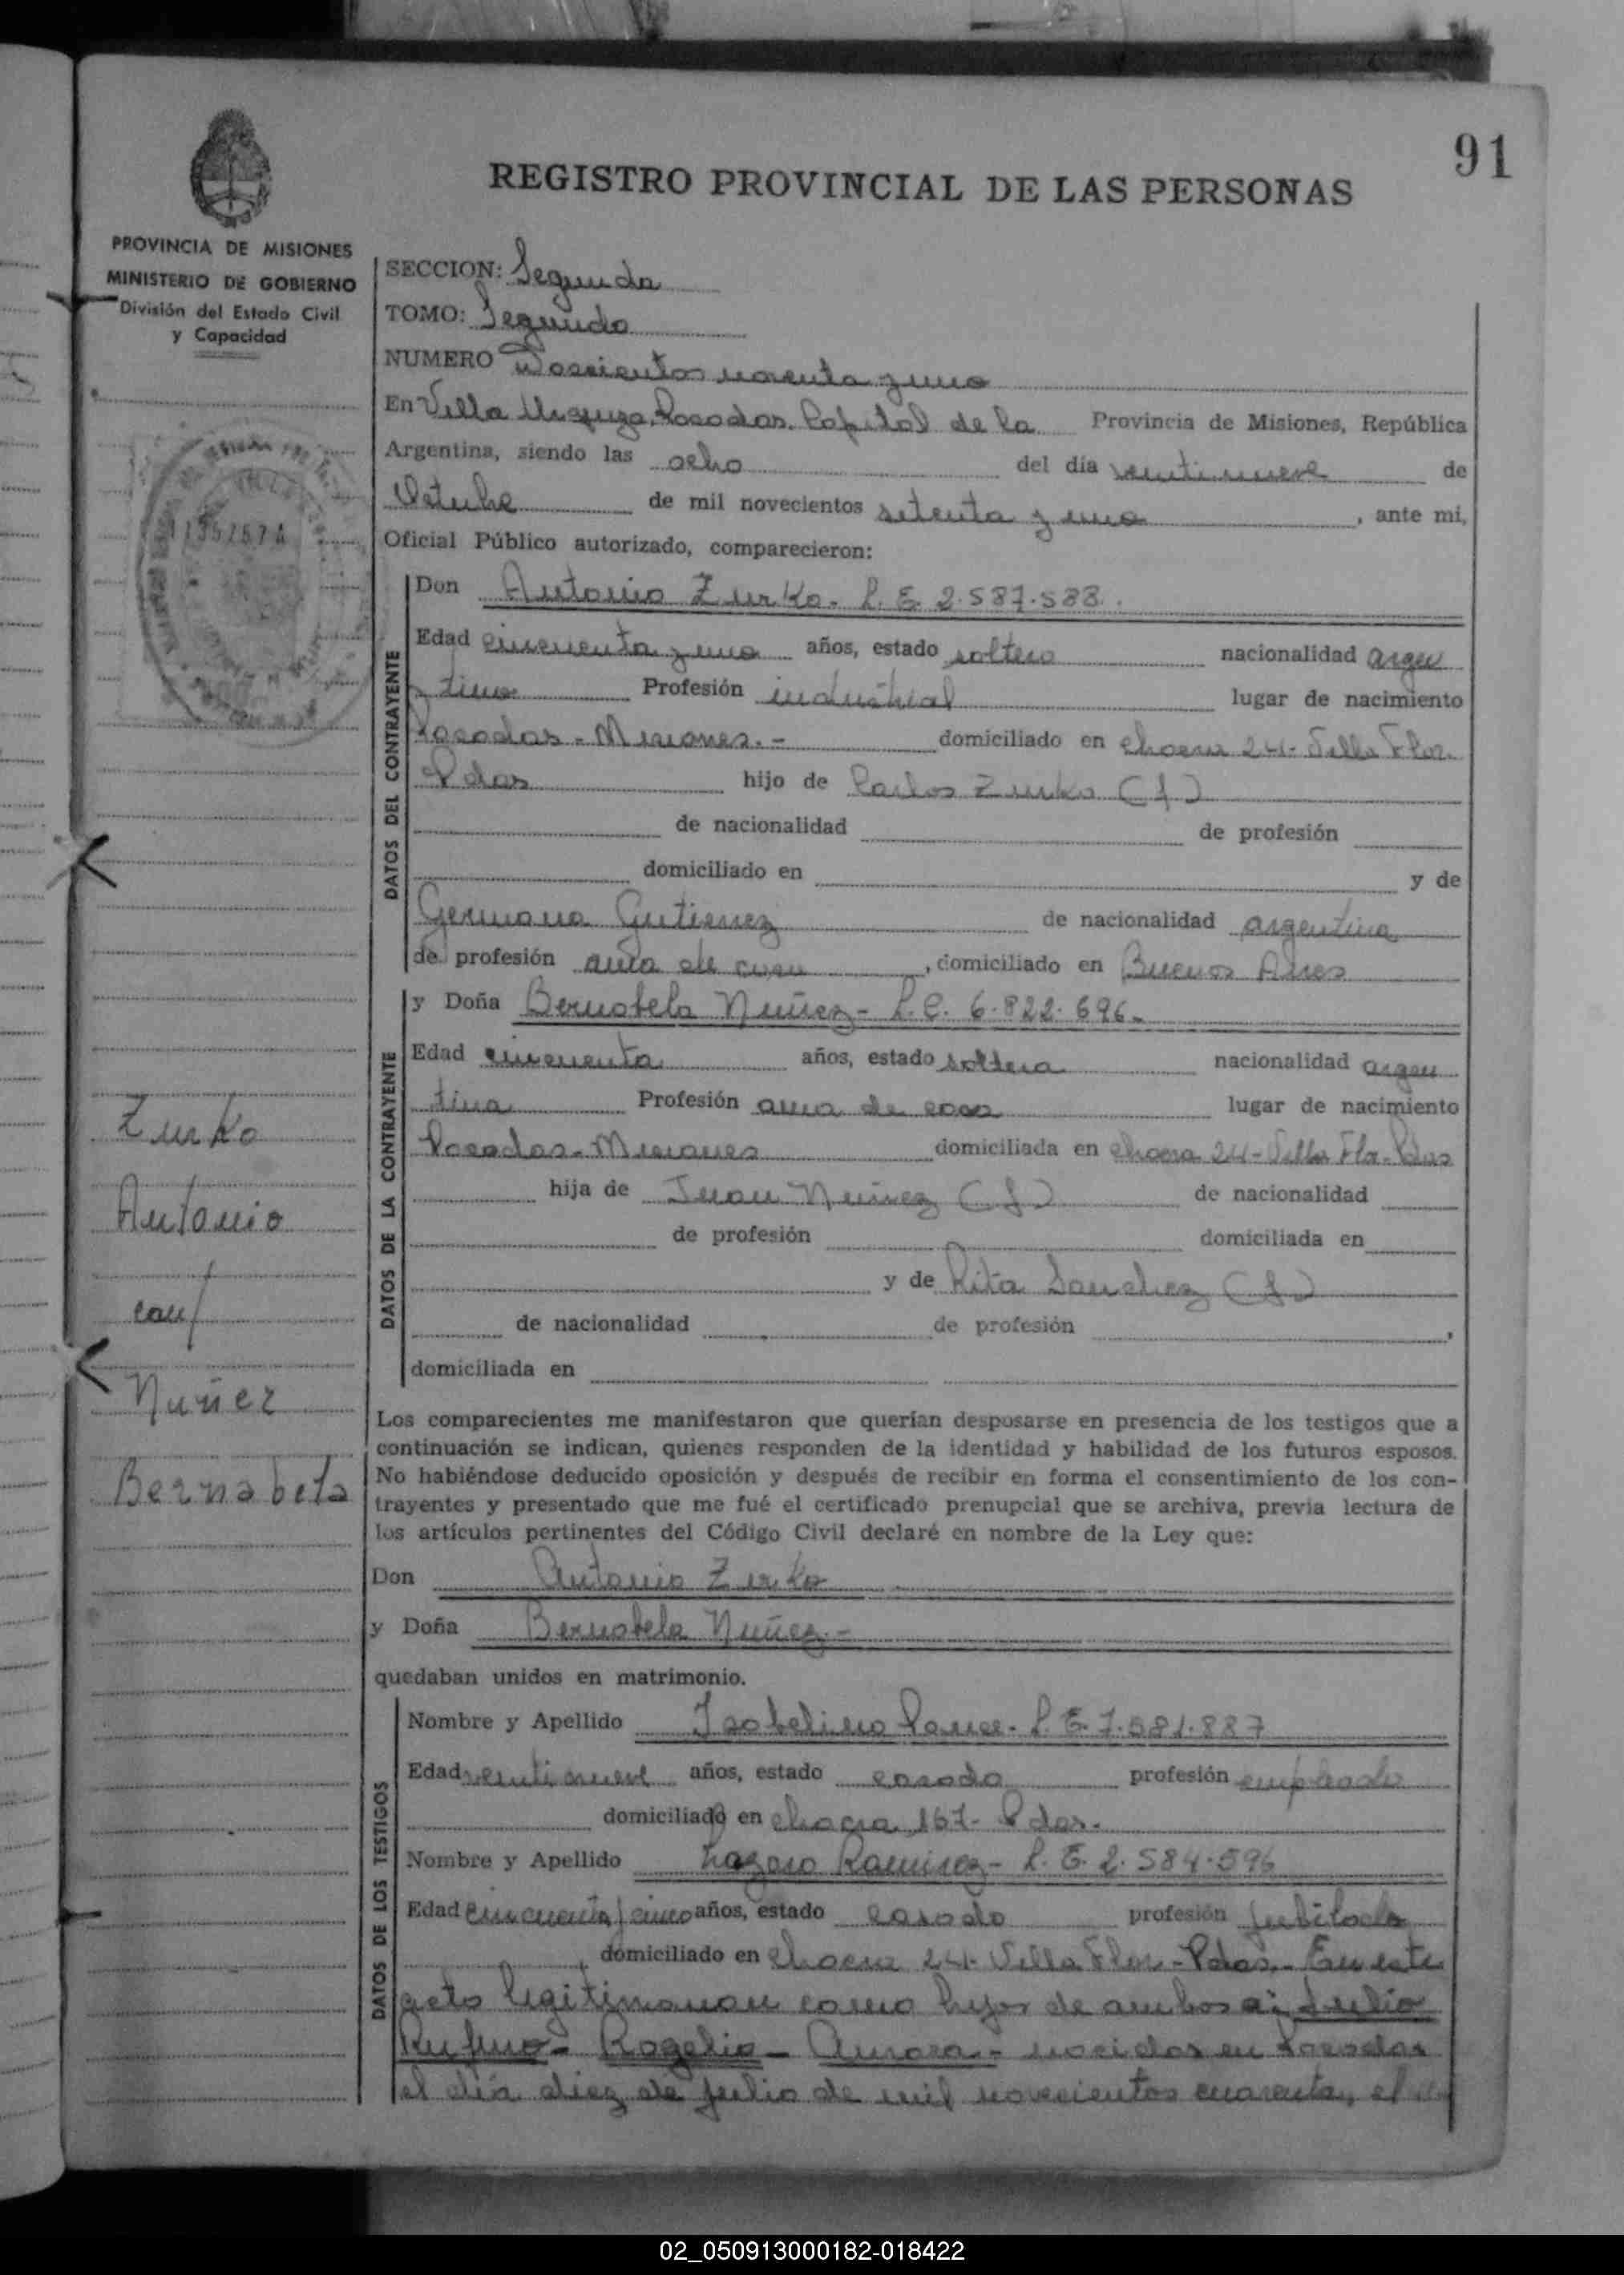 91
REGISTRO PROVINCIAL DE LAS PERSONAS
PROVINCIA DE MISIONES
MINISTERIO DE GOBIERNO
División del Estado Civil
y Capacidad
SECCION: Segunda
TOMO: Segundo
NUMERO Doscientos noventa y uno
En Villa Urquiza, Posadas, Capital de la Provincia de Misiones, República
Argentina, siendo las ocho del día veintinueve de
Octubre de mil novecientos setenta y uno, ante mi,
Oficial Público autorizado, comparecieron:
DATOS DEL CONTRAYENTE
Don Antonio Zurko. L. E. 2.587.588.
Edad cincuenta y uno años, estado soltero nacionalidad argen
tino Profesión industrial lugar de nacimiento
Posadas - Misiones. - domiciliado en chacra 24 - Villa Flor.
Pdas hijo de Carlos Zurko (f)
de nacionalidad de profesión
domiciliado en y de
Germana Gutierrez de nacionalidad argentina
de profesión ama de casa, domiciliado en Buenos Aires
DATOS DE LA CONTRAYENTE
y Doña Bernabela Nuñez - L.C. 6.822.696.-
Edad cincuenta años, estado soltera nacionalidad argen
tina Profesión ama de casa lugar de nacimiento
Posadas - Misiones domiciliada en chacra 24 - Villa Flor - Pdas
hija de Juan Nuñez (f) de nacionalidad
de profesión domiciliada en
y de Rita Sanchez (f)
de nacionalidad de profesión ,
domiciliada en
Zurko
Antonio
con/
Nuñez
Bernabela
Los comparecientes me manifestaron que querían desposarse en presencia de los testigos que a
continuación se indican, quienes responden de la identidad y habilidad de los futuros esposos.
No habiéndose deducido oposición y después de recibir en forma el consentimiento de los con-
trayentes y presentado que me fué el certificado prenupcial que se archiva, previa lectura de
los artículos pertinentes del Código Civil declaré en nombre de la Ley que:
Don Antonio Zurko
y Doña Bernabela Nuñez.-
quedaban unidos en matrimonio.
DATOS DE LOS TESTIGOS
Nombre y Apellido Isabelino L. E. 7.581.887
Edad veintinueve años, estado casado profesión empleado
domiciliado en chacra 167- Pdas.
Nombre y Apellido Lazaro Ramirez - L. E. 2.584.596
Edad cincuenta y cinco años, estado casado profesión jubilado
, domiciliado en chacra 24. Villa Flor - Pdas. - En este
acto legitimaron como hijos de ambos a: Julio
Rufino - Rogelio - Aurora - nacidos en Posadas
el día diez de julio de mil novecientos cuarenta, el
02_050913000182-018422